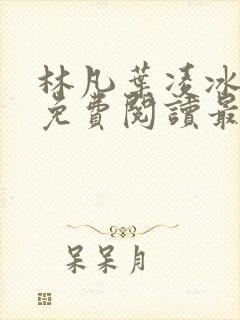 林凡葉凌冰
免費閱讀最
呆呆月